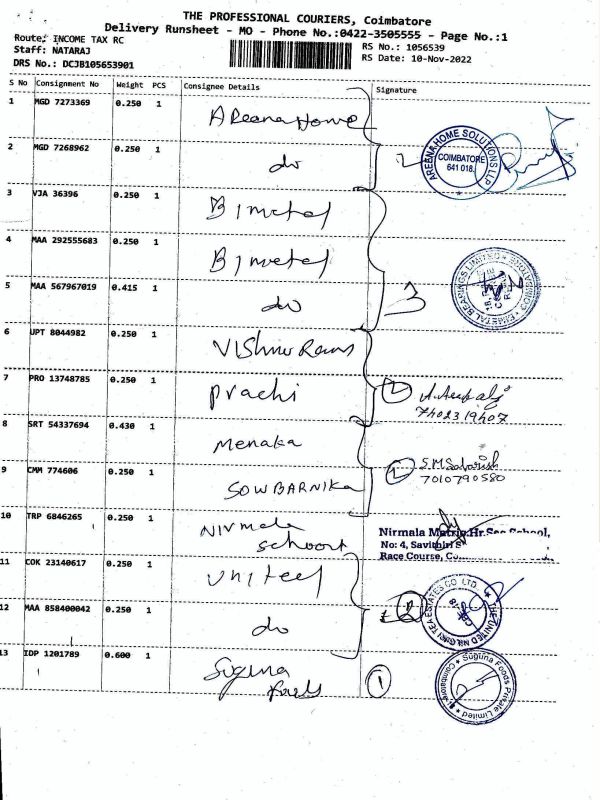 THE PROFESSIONAL COURIERS, Coimbatore
Delivery Runsheet - MO - Phone No.:0422-3505555 - Page No.:1
Route: INCOME TAX RC
Staff: NATARAJ
DRS No.: DCJB105653901
RS No.: 1056539
RS Date: 10-Nov-2022
S No Consignment No Weight PCS Consignee Details Signature
1 MGD 7273369 0.250 1 Areena Home
2 MGD 7268962 0.250 1 do
2
AREENA HOME SOLUTIONS LLP
COIMBATORE
641 018.
3 VJA 36396 0.250 1 Bimetal
4 MAA 292555683 0.250 1 Bimetal
5 MAA 567967019 0.415 1 do
3
BIMETAL BEARINGS LIMITED * COIMBATORE
6 UPT 8044982 0.250 1 Vishnu Ram
7 PRO 13748785 0.250 1 prachi
2
7402319407
8 SRT 54337694 0.430 1 menaka
9 CMM 774606 0.250 1 SOWBARNIKA
7010790580
10 TRP 6846265 0.250 1 Nirmala
school
Nirmala Matric.Hr.Sec School,
No: 4, Savithiri
Race Course,
11 COK 23140617 0.250 1 United
12 MAA 858400042 0.250 1 do
2
THE UNITED NILGIRI TEA ESTATES CO. LTD.
CBE-18
13 IDP 1201789 0.600 1 Suguna
1
Suguna Foods Private Limited * Coimbatore